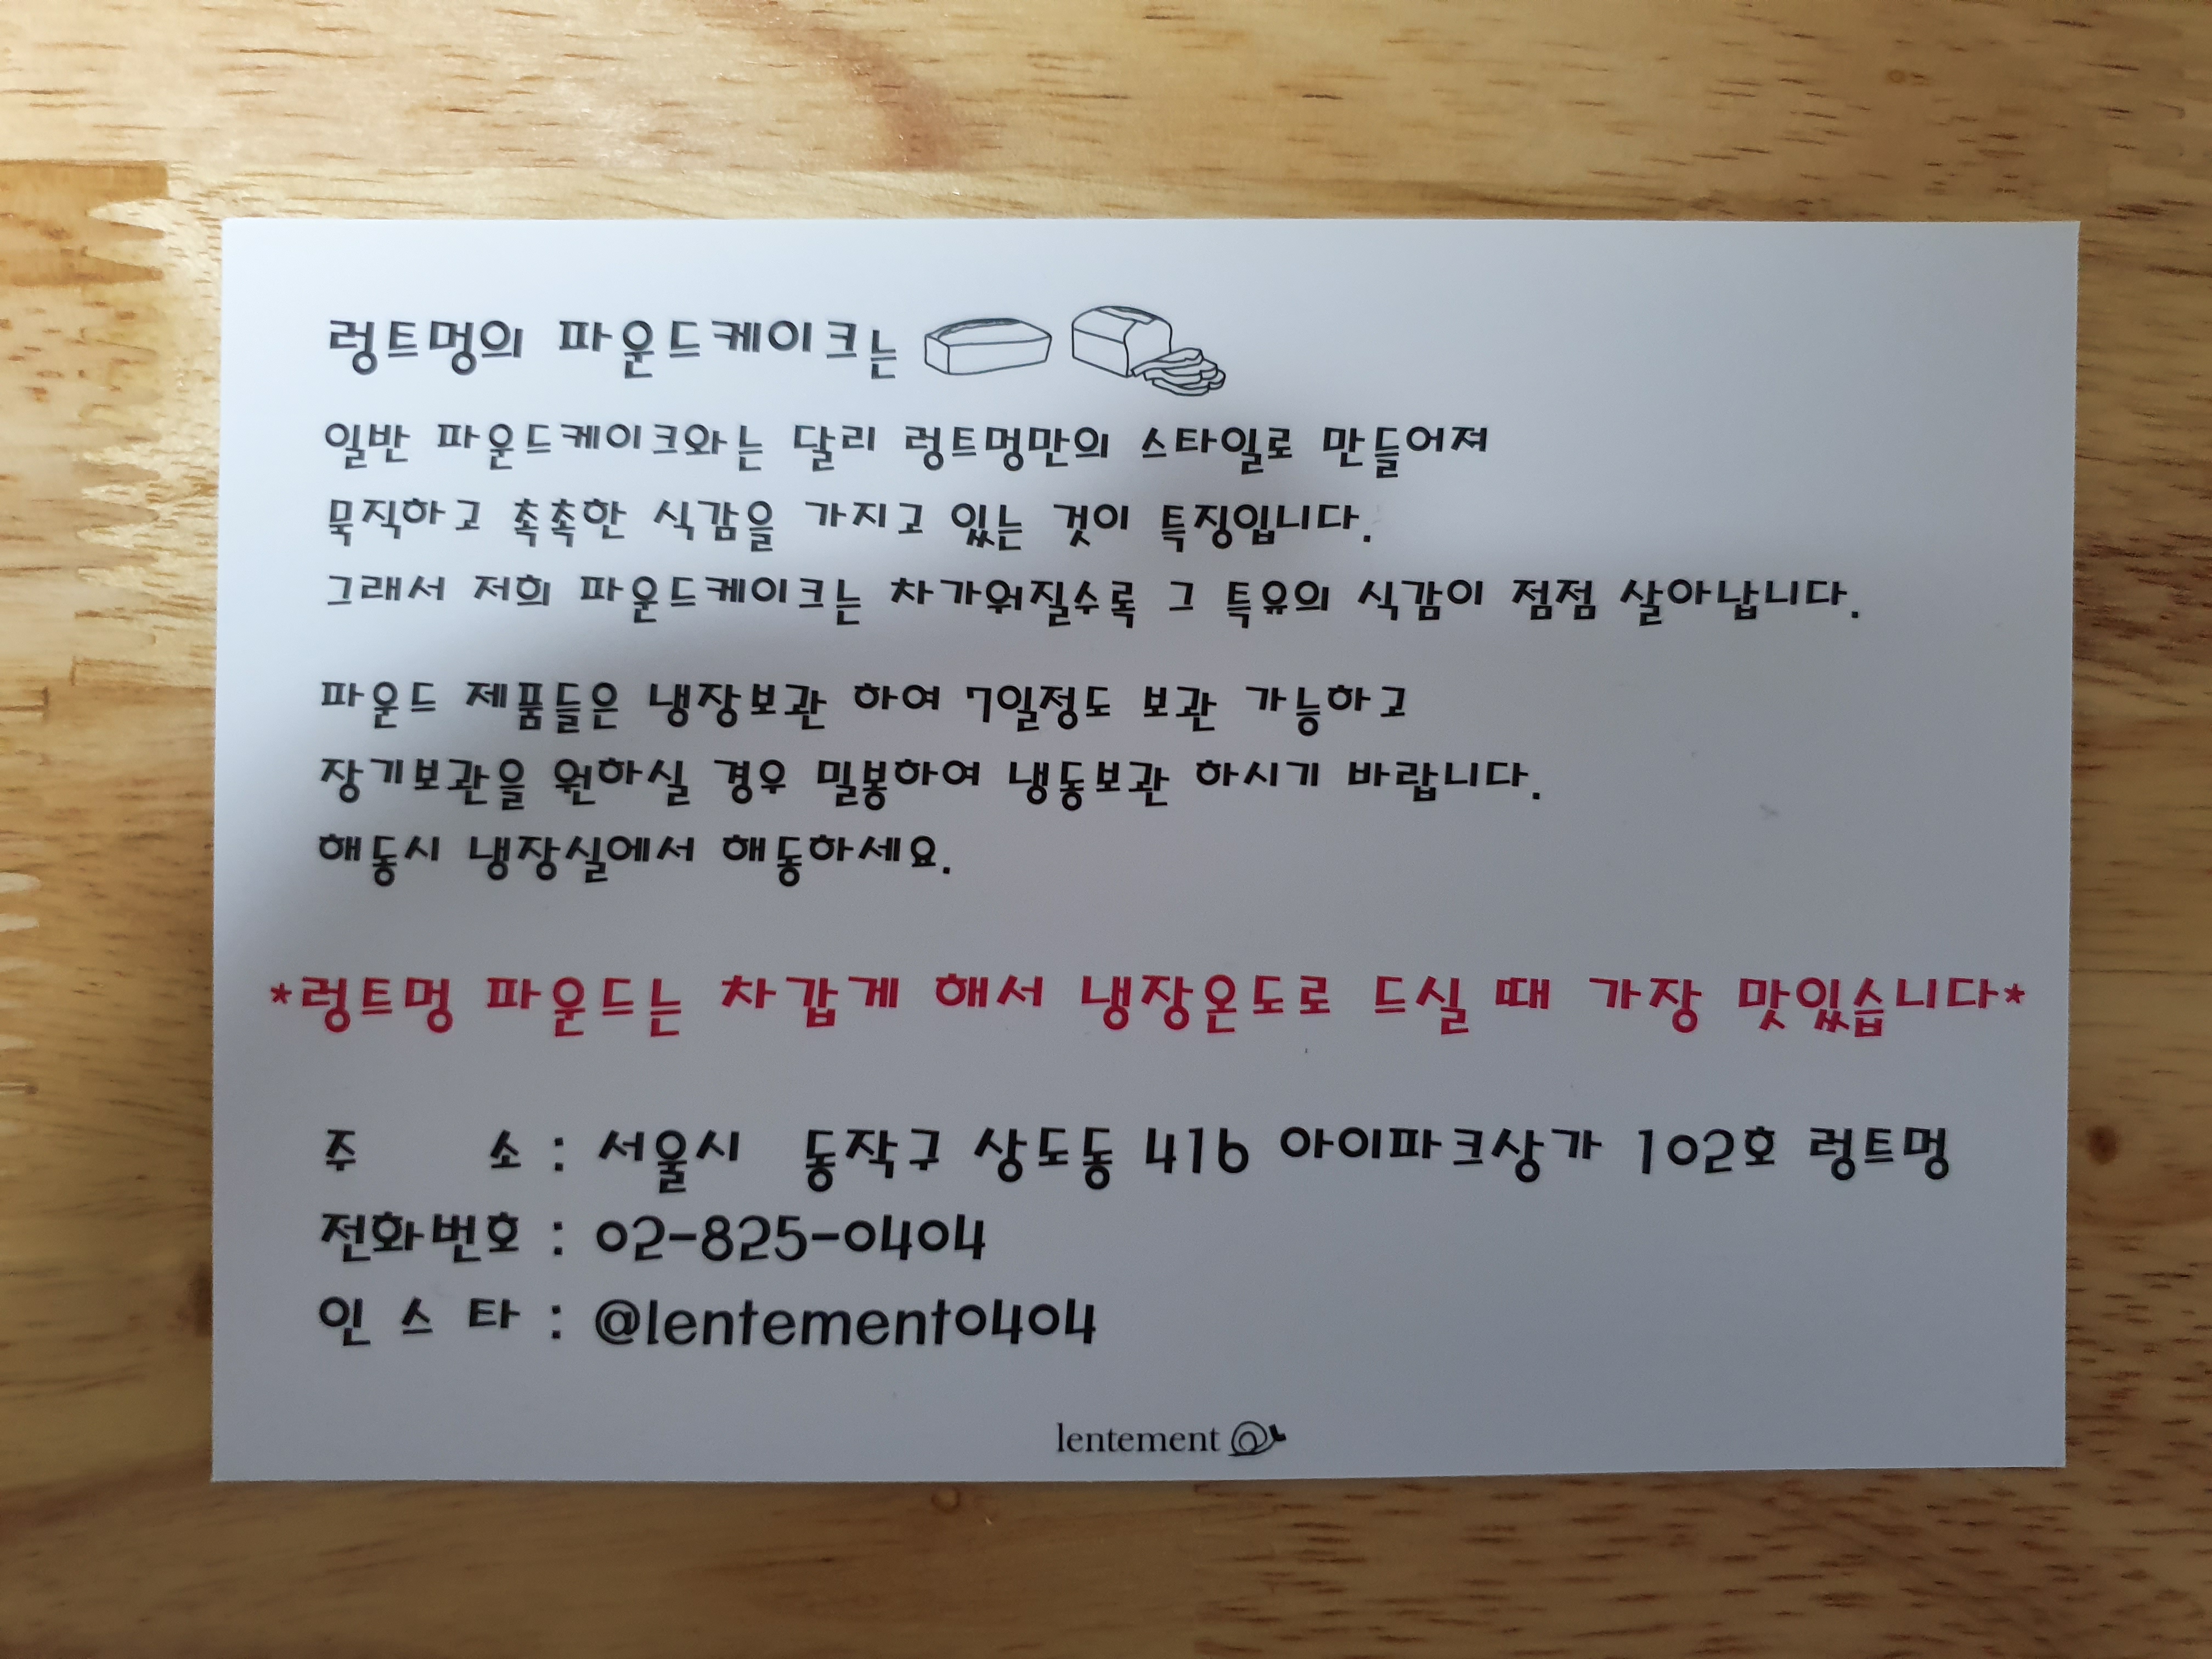 렁트멍의 파운드케이크는
일반 파운드케이크와는 달리 렁트멍만의 스타일로 만들어져
묵직하고 촉촉한 식감을 가지고 있는 것이 특징입니다.
그래서 저희 파운드케이크는 차가워질수록 그 특유의 식감이 점점 살아납니다.
파운드 제품들은 냉장보관 하여 7일정도 보관 가능하고
장기보관을 원하실 경우 밀봉하여 냉동보관 하시기 바랍니다.
해동시 냉장실에서 해동하세요.
*렁트멍 파운드는 차갑게 해서 냉장온도로 드실 때 가장 맛있습니다*
주 소 : 서울시 동작구 상도동 416 아이파크상가 102호 렁트멍
전화번호 : 02-825-0404
인 스 타 : @lentement0404
lentement